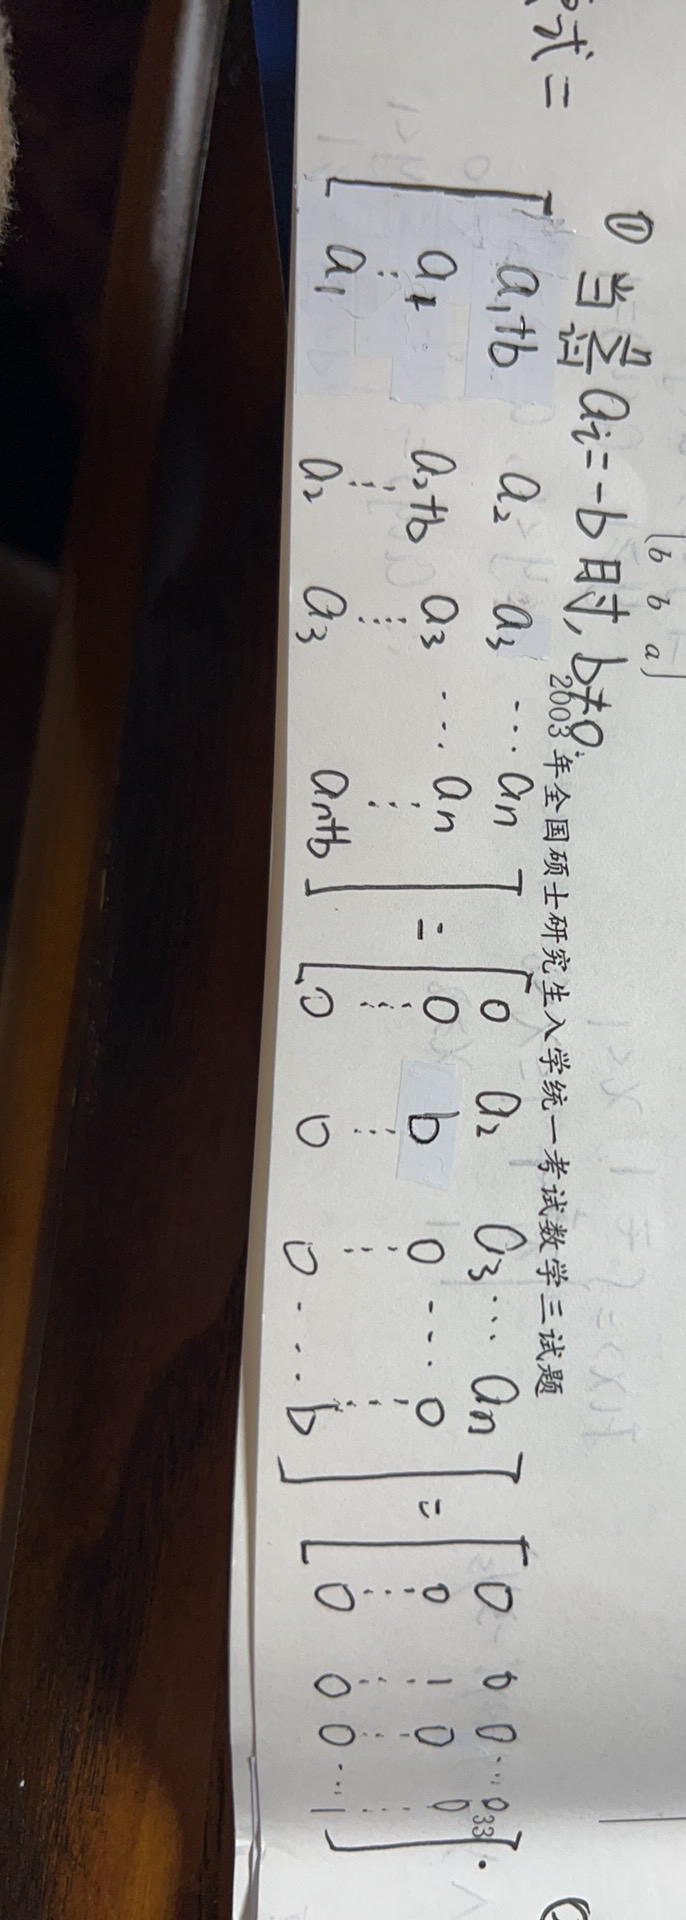 式=
① 当 n∑i=1 ai=-b 时, b≠0.
(b b a)
2003年全国硕士研究生入学统一考试数学三试题
[ a1+b a2 a3 ... an
a1 a2+b a3 ... an
⋮ ⋮ ⋮ ⋮
a1 a2 a3 an+b ]
=
[ 0 a2 a3 ... an
0 b 0 ... 0
⋮ ⋮ ⋮ ⋮
0 0 0 ... b ]
=
[ 0 0 0 ... 0
0 1 0 0
⋮ ⋮ ⋮ ⋮
0 0 0 ... 1 ].
33